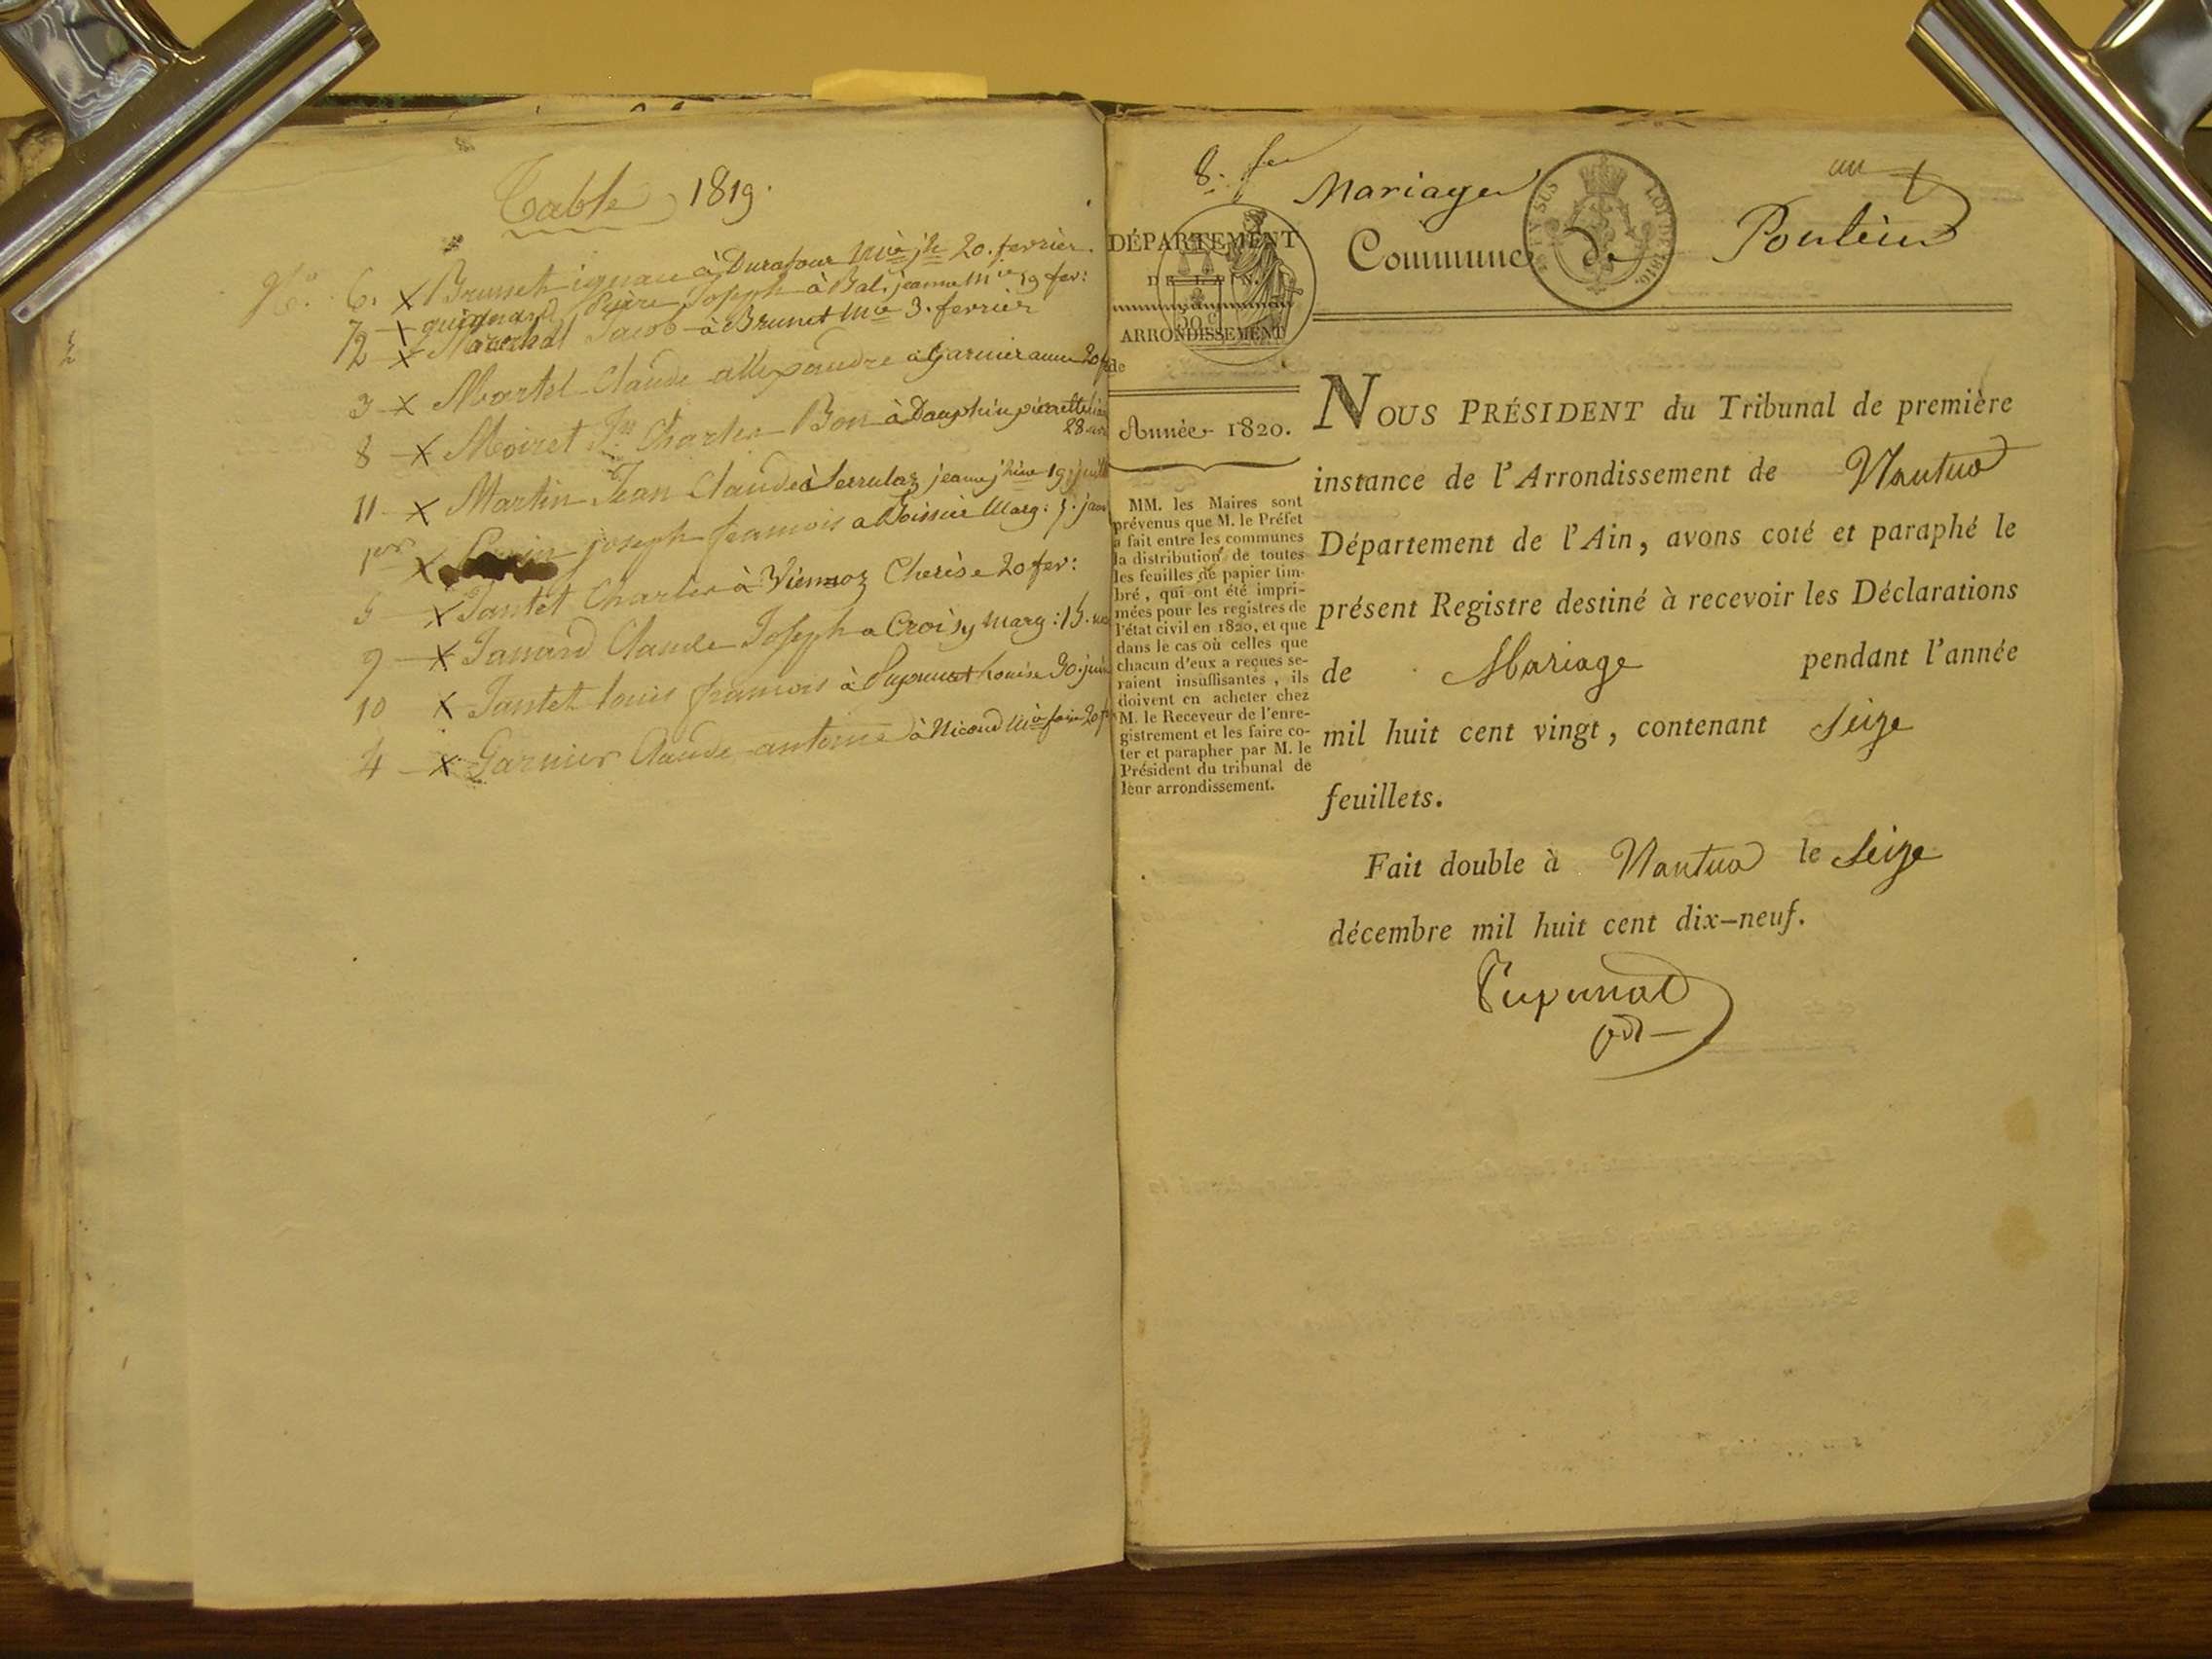 Table 1819.
N.o 6. x Brunet ignace à Durafour Mie jh 20. fevrier
7 x guignard Pierre Joseph à Bal. jeanne Mie 19 fev:
12 x Marechal Jacob à Brunet Mie 3. fevrier
3 x Martel Claude allexandre à Garnier anne 20
8 x Moiret Jn Charles Bon à Dauphin pierrette
28
11 x Martin Jean Claude à Serrulaz jeanne 19 juill
1er x joseph francois a Boissié Marg: 5. jan
5 x Jantet Charles à Viennoz Cherèse 20 fev:
9 x Janard Claude Joseph a Croisy Marg: 15.
10 x Jantet louis francois à Puponnat Louise 30. juin
4 x Garnier Claude antoine à Nicoud 20
8. fer
Mariages
un
DÉPARTEMENT
DE L'AIN.
ARRONDISSEMENT
de
Commune de Pontein
TIMB. EN SUS
LOI DE 1816.
50 C
Année 1820.
MM. les Maires sont
prévenus que M. le Préfet
a fait entre les communes
la distribution de toutes
les feuilles de papier tim-
bré, qui ont été impri-
mées pour les registres de
l'état civil en 1820, et que
dans le cas où celles que
chacun d'eux a reçues se-
raient insuffisantes, ils
doivent en acheter chez
M. le Receveur de l'enre-
gistrement et les faire co-
ter et parapher par M. le
Président du tribunal de
leur arrondissement.
NOUS PRÉSIDENT du Tribunal de première
instance de l'Arrondissement de Nantua
Département de l'Ain, avons coté et paraphé le
présent Registre destiné à recevoir les Déclarations
de Mariage pendant l'année
mil huit cent vingt, contenant Seize
feuillets.
Fait double à Nantua le Seize
décembre mil huit cent dix-neuf.
Pupunat